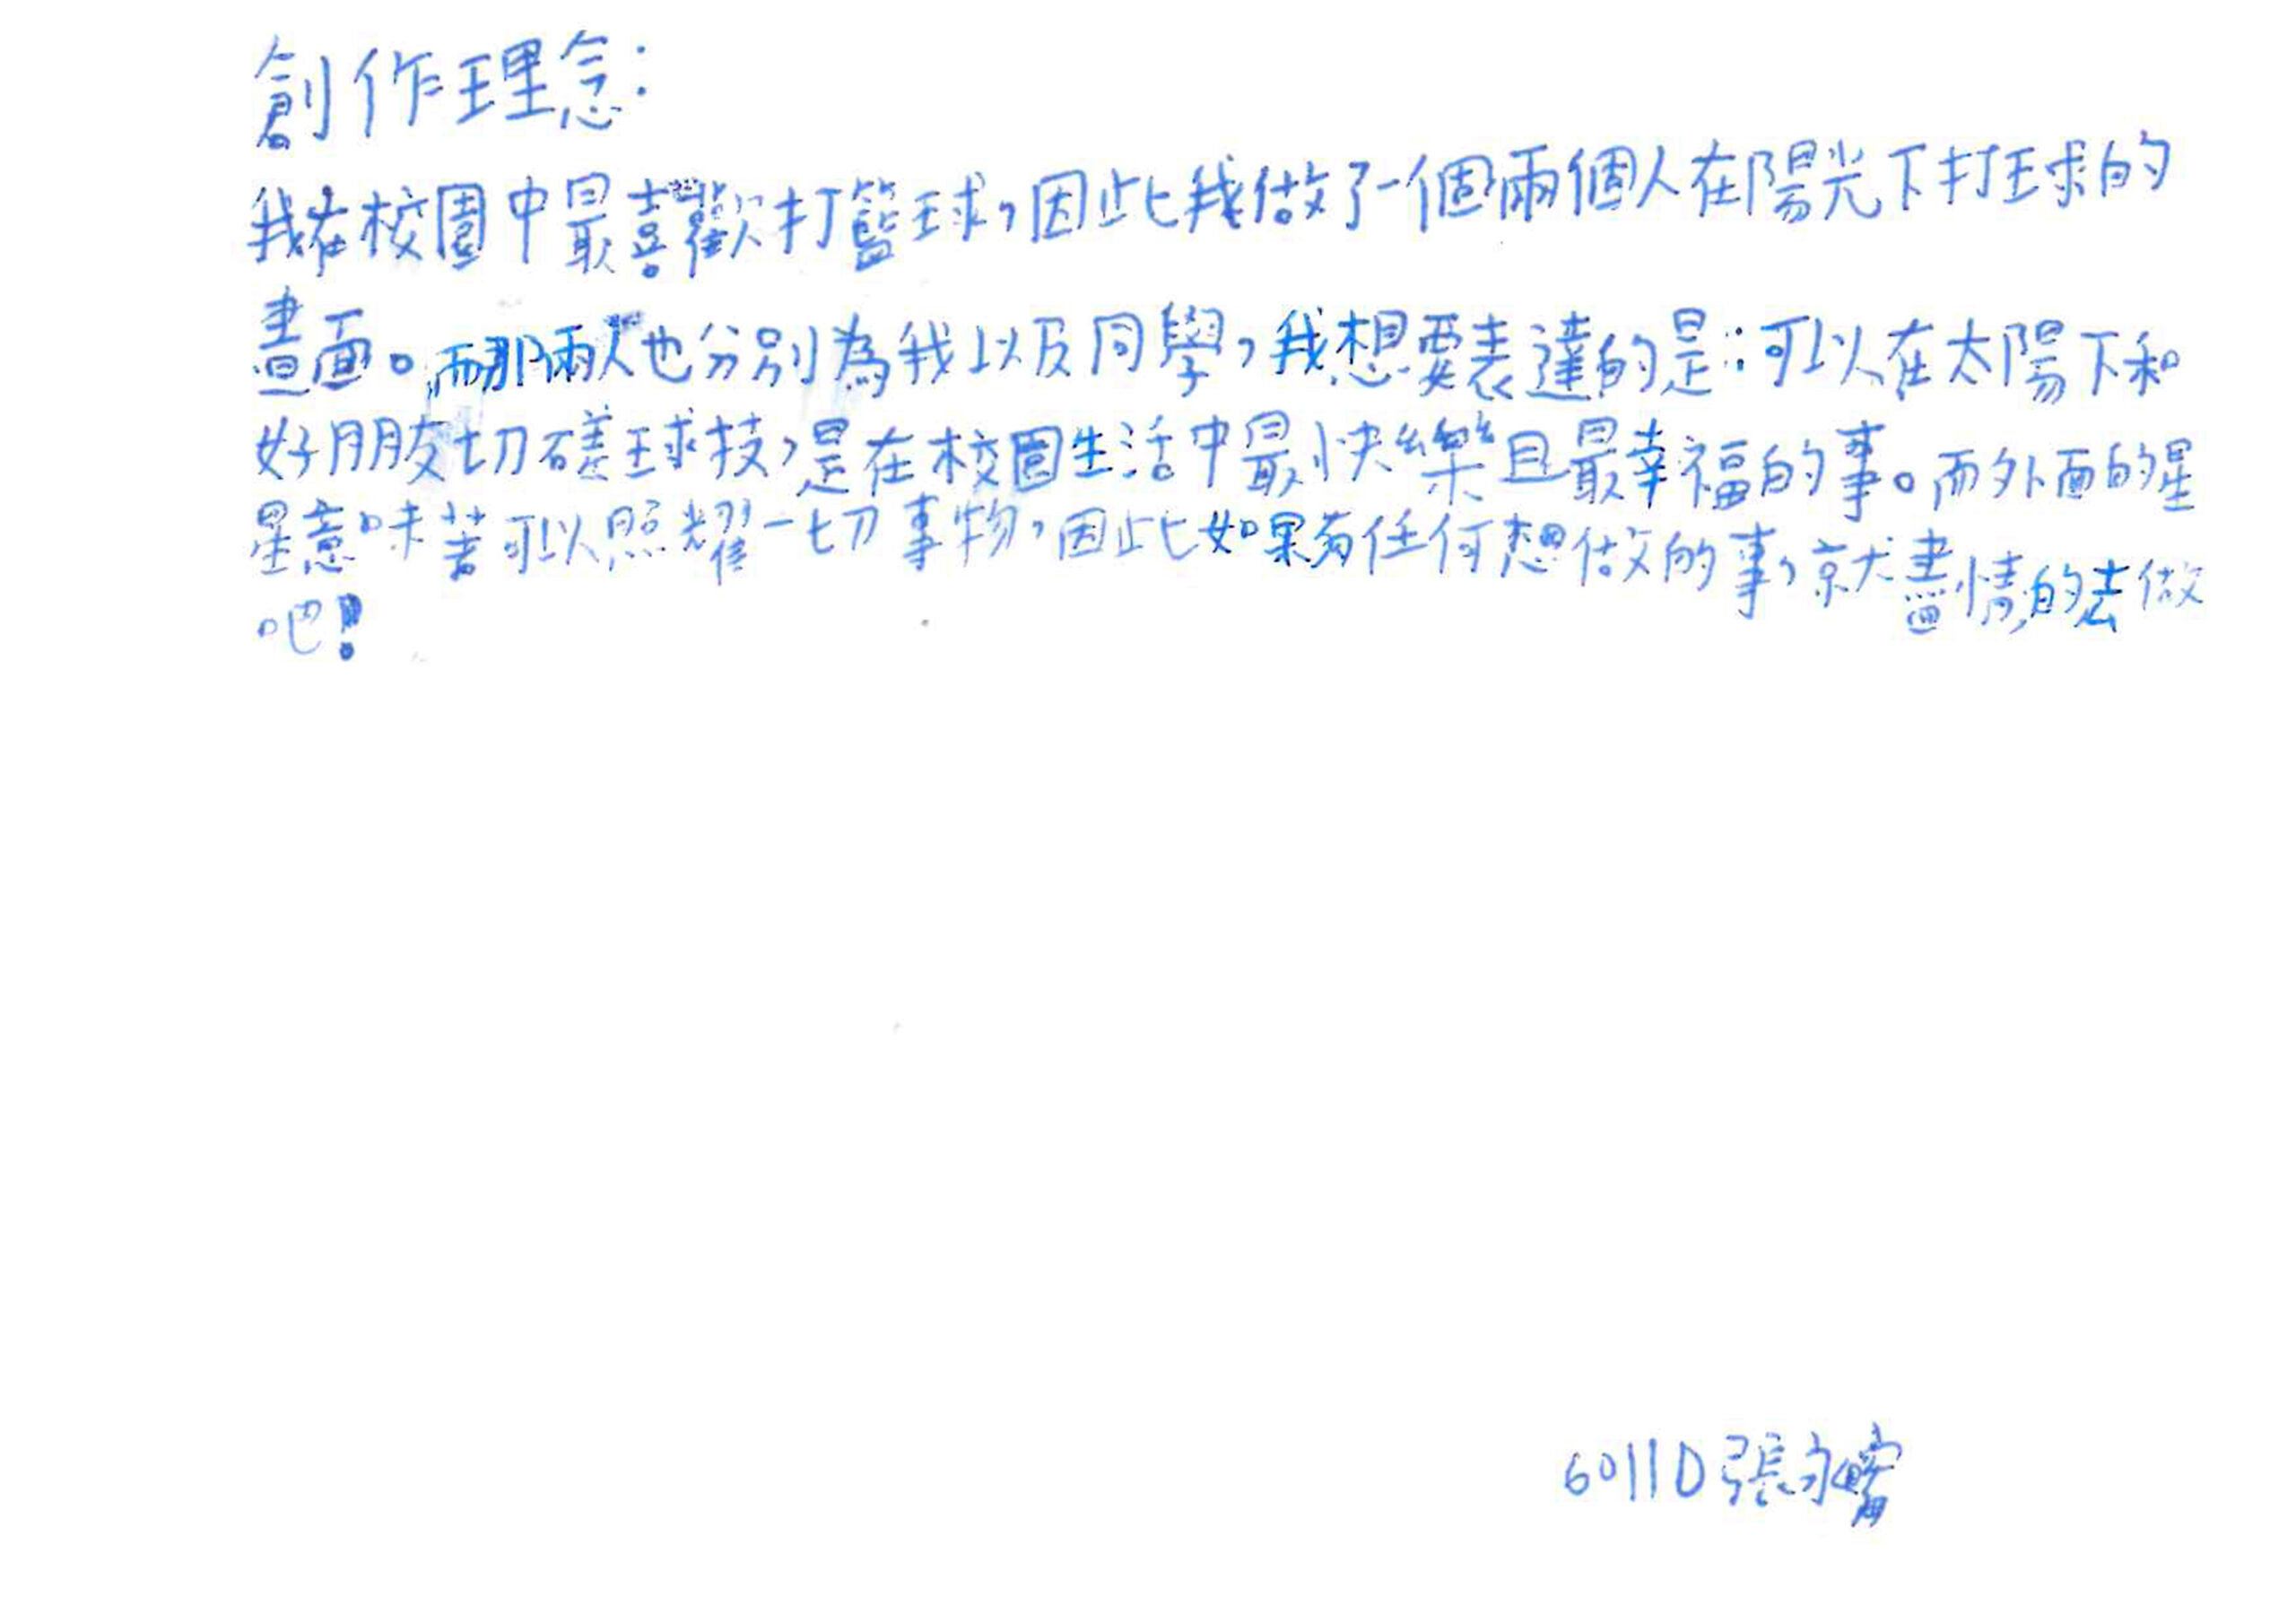 創作理念：
我在校園中最喜歡打籃球，因此我做了一個兩個人在陽光下打球的
畫面。而那兩人也分別為我以及同學，我想要表達的是：可以在太陽下和
好朋友切磋球技，是在校園生活中最快樂且最幸福的事。而外面的星
星意味著可以照耀一切事物，因此如果有任何想做的事，就盡情的去做
吧！
60110 張永